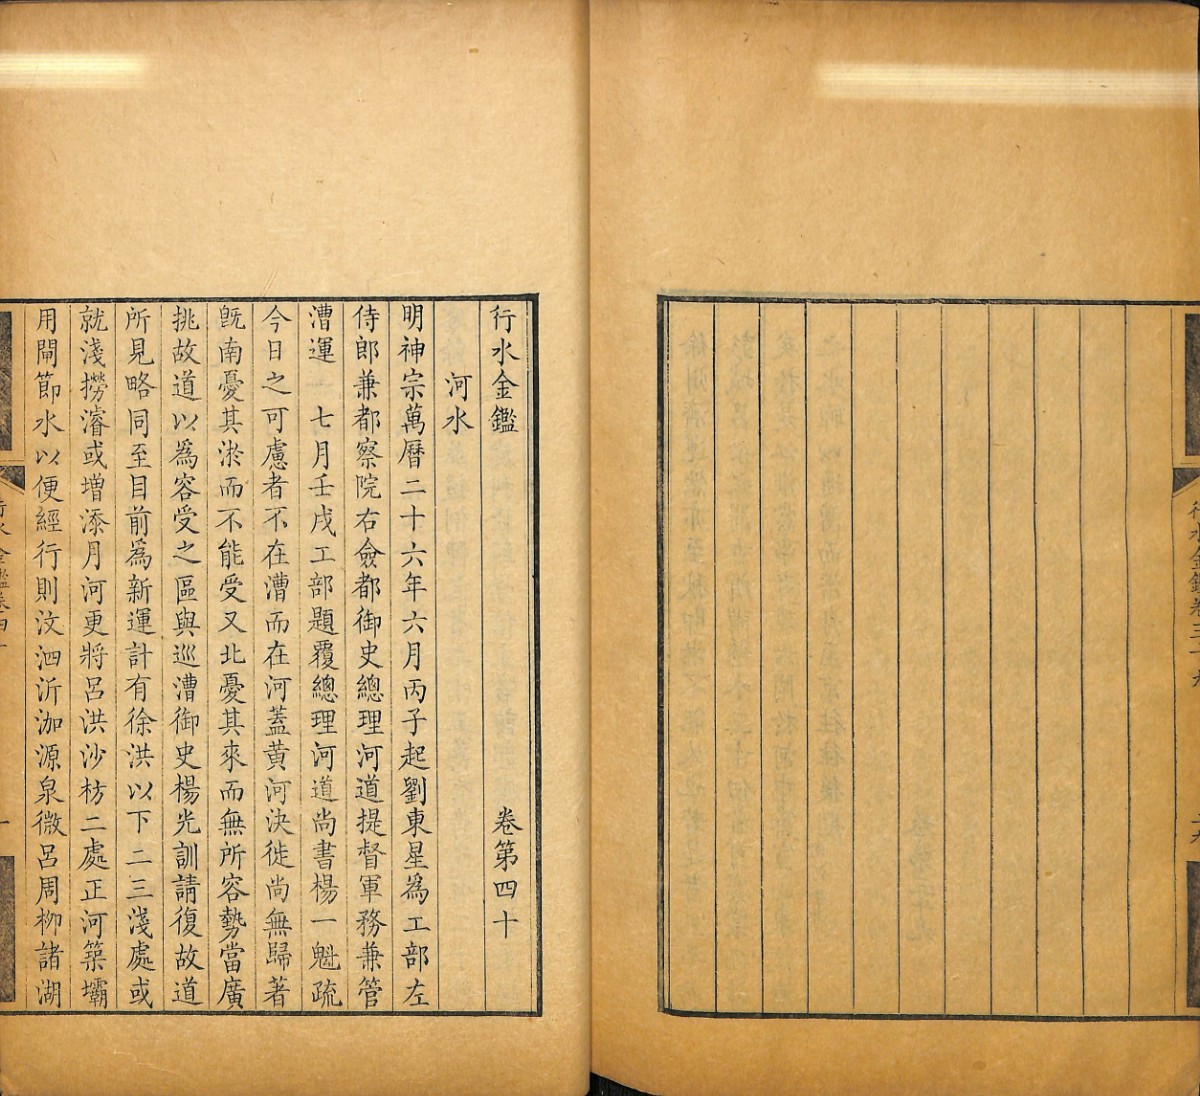 行水金鑑卷三十九
行水金鑑　卷第四十
河水
明神宗萬曆二十六年六月丙子起劉東星為工部左
侍郎兼都察院右僉都御史總理河道提督軍務兼管
漕運　七月壬戌工部題覆總理河道尚書楊一魁疏
今日之可慮者不在漕而在河蓋黃河決徙尚無歸著
旣南憂其淤而不能受又北憂其來而無所容勢當廣
挑故道以為容受之區與巡漕御史楊光訓請復故道
所見略同至目前為新運計有徐洪以下二三淺處或
就淺撈濬或增添月河更將呂洪沙枋二處正河築壩
用閘節水以便經行則汶泗沂泇源泉微呂周柳諸湖
行水金鑑卷四十